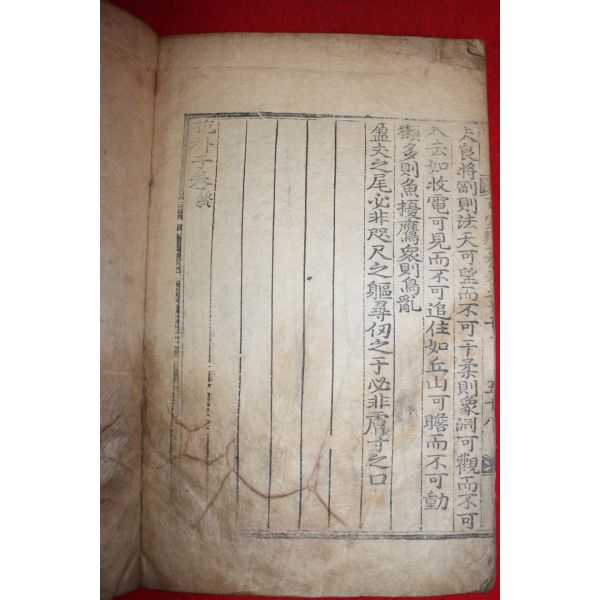 五十八
夫良將剛則法天可望而不可干柔則象淵可觀而不可
入去如收電可見而不可追住如丘山可瞻而不可動
獺多則魚擾鷹衆則鳥亂
盈丈之尾必非咫尺之軀尋仞之牙必非膚寸之口
抱朴子卷終